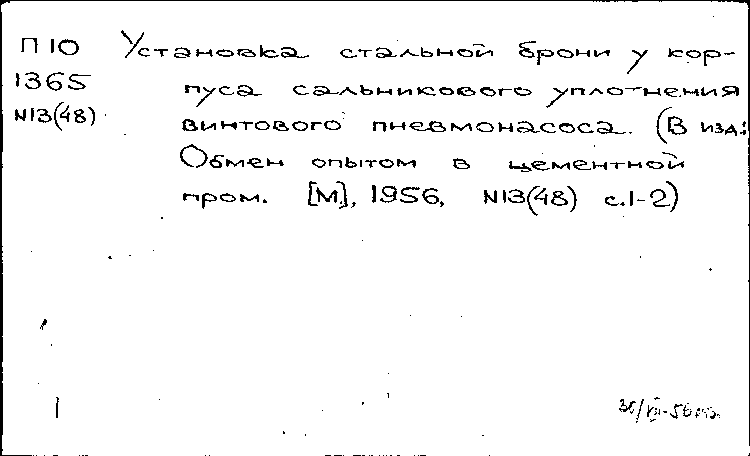 П 10 Установка стальной брони у кор-
1365 пуса сальникового уплотнения
N13(48) винтового пневмонасоса. (В изд:
Обмен опытом в цементной
пром. [М], 1956, N13(48) с.1-2)